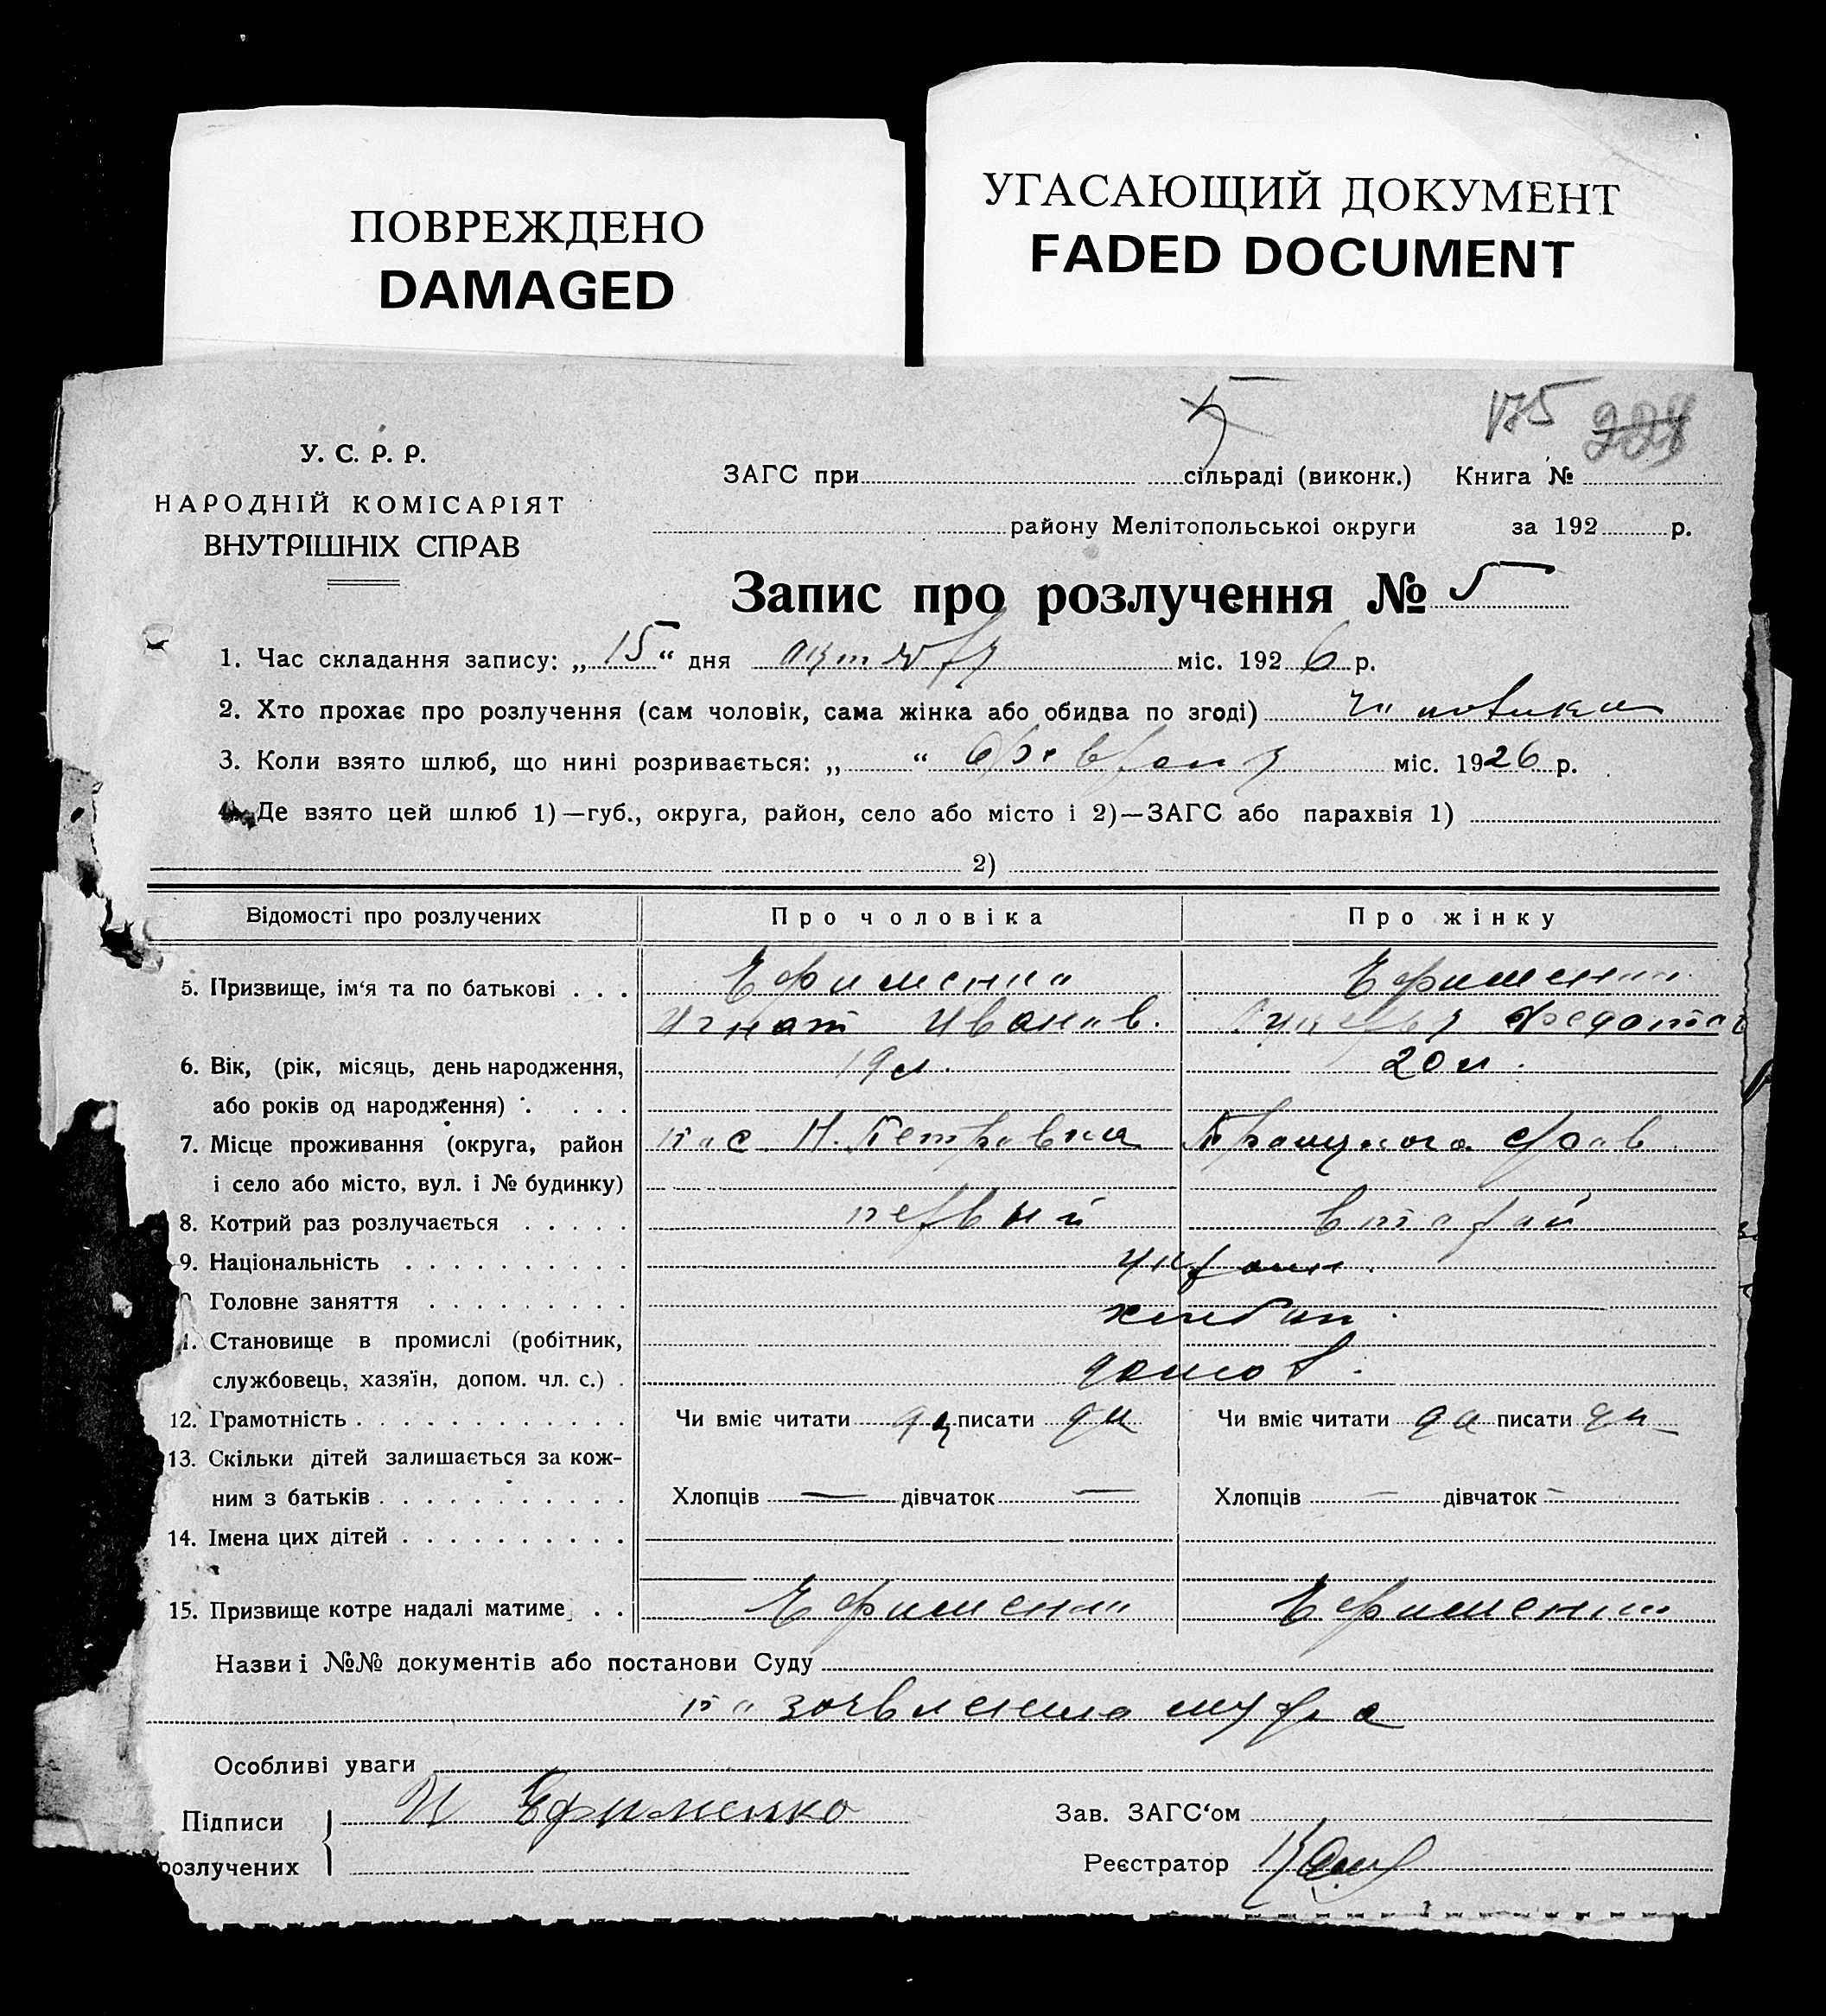 ПОВРЕЖДЕНО
DAMAGED
УГАСАЮЩИЙ ДОКУМЕНТ
FADED DOCUMENT
5
175 224
У. С. Р. Р.
НАРОДНІЙ КОМІСАРІЯТ
ВНУТРІШНІХ СПРАВ
ЗАГС при сільраді (виконк.) Книга №
району Мелітопольської округи за 192 р.
Запис про розлучення № 5
1. Час складання запису: „ 15 “ дня октября міс. 192 6 р.
2. Хто прохає про розлучення (сам чоловік, сама жінка або обидва по згоді)
3. Коли взято шлюб, що нині розривається: „ “ февраля міс. 1926 р.
4. Де взято цей шлюб 1)—губ., округа, район, село або місто і 2)—ЗАГС або парахвія 1)
2)
Відомості про розлучених Про чоловіка Про жінку
5. Призвище, ім‘я та по батькові . . . Ефименко Ефименко
Игнат Иванов. Федотов
6. Вік, (рік, місяць, день народження, 19 л. 20 л.
або років од народження) . . . .
7. Місце проживання (округа, район пос. Н. Петровка
і село або місто, вул. і № будинку)
8. Котрий раз розлучається . . . . . первый второй
9. Національність . . . . . . . . . . украин.
Головне заняття . . . . . . . . . хлебоп.
1. Становище в промислі (робітник,
службовець, хазяїн, допом. чл. с.) . домов.
12. Грамотність . . . . . . . . . . . . Чи вміє читати да писати да Чи вміє читати да писати да
13. Скільки дітей залишається за кож-
ним з батьків . . . . . . . . . . . Хлопців — дівчаток — Хлопців — дівчаток —
14. Імена цих дітей . . . . . . . . . .
15. Призвище котре надалі матиме . . Ефименко Ефименко
Назви і №№ документів або постанови Суду
по заявлению мужа
Особливі уваги
Підписи И Ефименко Зав. ЗАГС‘ом
розлучених Реєстратор